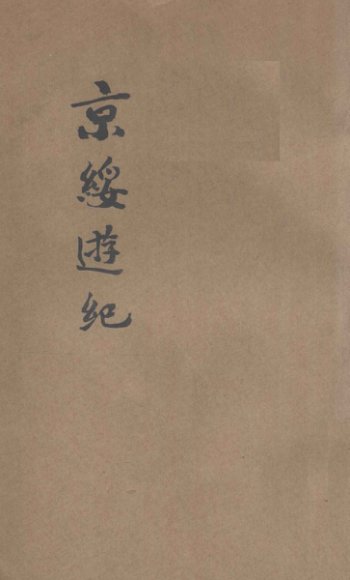 京綏遊紀